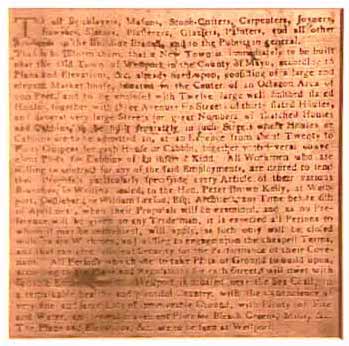 To all Bricklayers, Masons, Stone-Cutters, Carpenters, Joyners,
Slators, Plasterers, Glaziers, Painters, and all other
in the Building Branch, and to the Publick in general.
This is to inform them, that a New Town is immediately to be built
near the Old Town of Westport, in the County of Mayo, according to
Plans and Elevations, &c. already fixed upon, consisting of a large and
elegant Market-house, situated in the Center of an Octagon Area of
200 Feet, and to be enclosed with Twelve large well finished slated
Houses, together with three Avenues or Streets of thirty slated Houses,
and several very large Streets for great Numbers of Thatched Houses
and Cabbins, to be built separately, in such Streets where Houses or
Cabbins are to be admitted to, at an Expence from about Twenty to
Guineas for each House or Cabbin, together with several
Plots for Cabbins of an inferior Kind. All Workmen who are
willing to contract for any of the said Employments, are desired to send
their Proposals, particularly specifying every Article of their various
Branches, in Writing sealed, to the Hon. Peter Brown Kelly, at West-
port, Castlebar, or William Leeson, Esq; Architect, any Time before
of April next, when their Proposals will be examined, and as no Pre-
ference will be given to any Tradesman, it is expected all Persons to
whom it may be convenient, will apply, as such only will be closed
with, as are Workmen, and willing to engage upon the cheapest Terms,
and that can give proper Security for the Performance of their Cove-
nants. All Persons who chuse to take Plots of Ground to build upon
according to the Plans and Regulations for each Street, will meet with
Encouragement. Westport is situated near the Sea Coast, in
a remarkable healthy and plentiful Country, with
fine and large Tract of improveable Ground, with Plenty of
and Water, and convenient Place for Bleach Greens, Mills, &c.
The Plans and Elevations, &c. are to be seen at Westport.